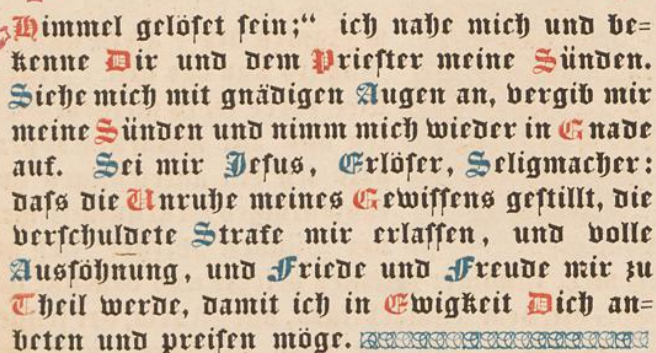 Himmel gelöset sein;“ ich nahe mich und be=
kenne Dir und dem Priester meine Sünden.
Siehe mich mit gnädigen Augen an, vergib mir
meine Sünden und nimm mich wieder in Gnade
auf. Sei mir Jesus, Erlöser, Seligmacher:
dass die Unruhe meines Gewissens gestillt, die
verschuldete Strafe mir erlassen, und volle
Aussöhnung, und Friede und Freude mir zu
Theil werde, damit ich in Ewigkeit Dich an=
beten und preisen möge.